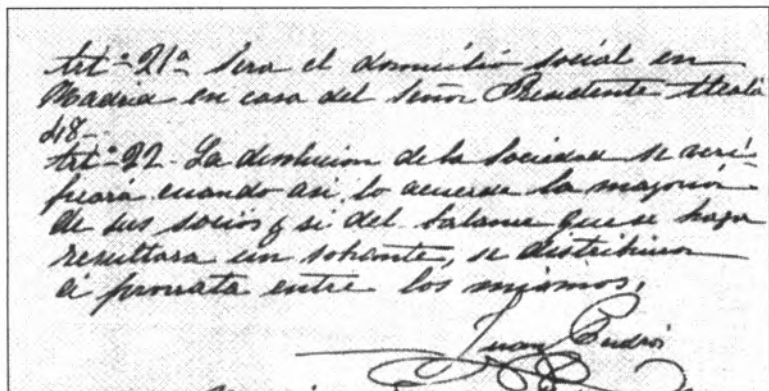 Artº 21º Sera el domicilio social en
Madrid en casa del Señor Presidente Alcalá
48-
Artº 22- La disolucion de la Sociedad se veri-
ficará cuando asi lo acuerde la mayoria
de sus socios y si del balance que se haga
resultara un sobrante, se distribuira
á prorrata entre los mismos.
Juan